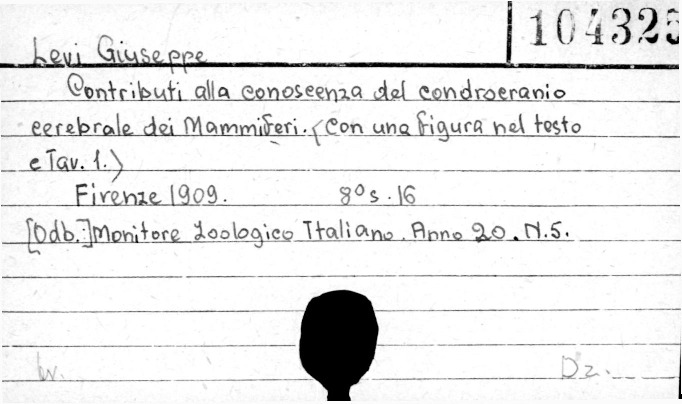 104325
Levi Giuseppe
Contributi alla conoscenza del condrocranio
cerebrale dei Mammiferi. (Con una figura nel testo
e Tav. 1.)
Firenze 1909. 8º s. 16
[Odb.] Monitore Zoologico Italiano. Anno 20. N.5.
W. Dz.